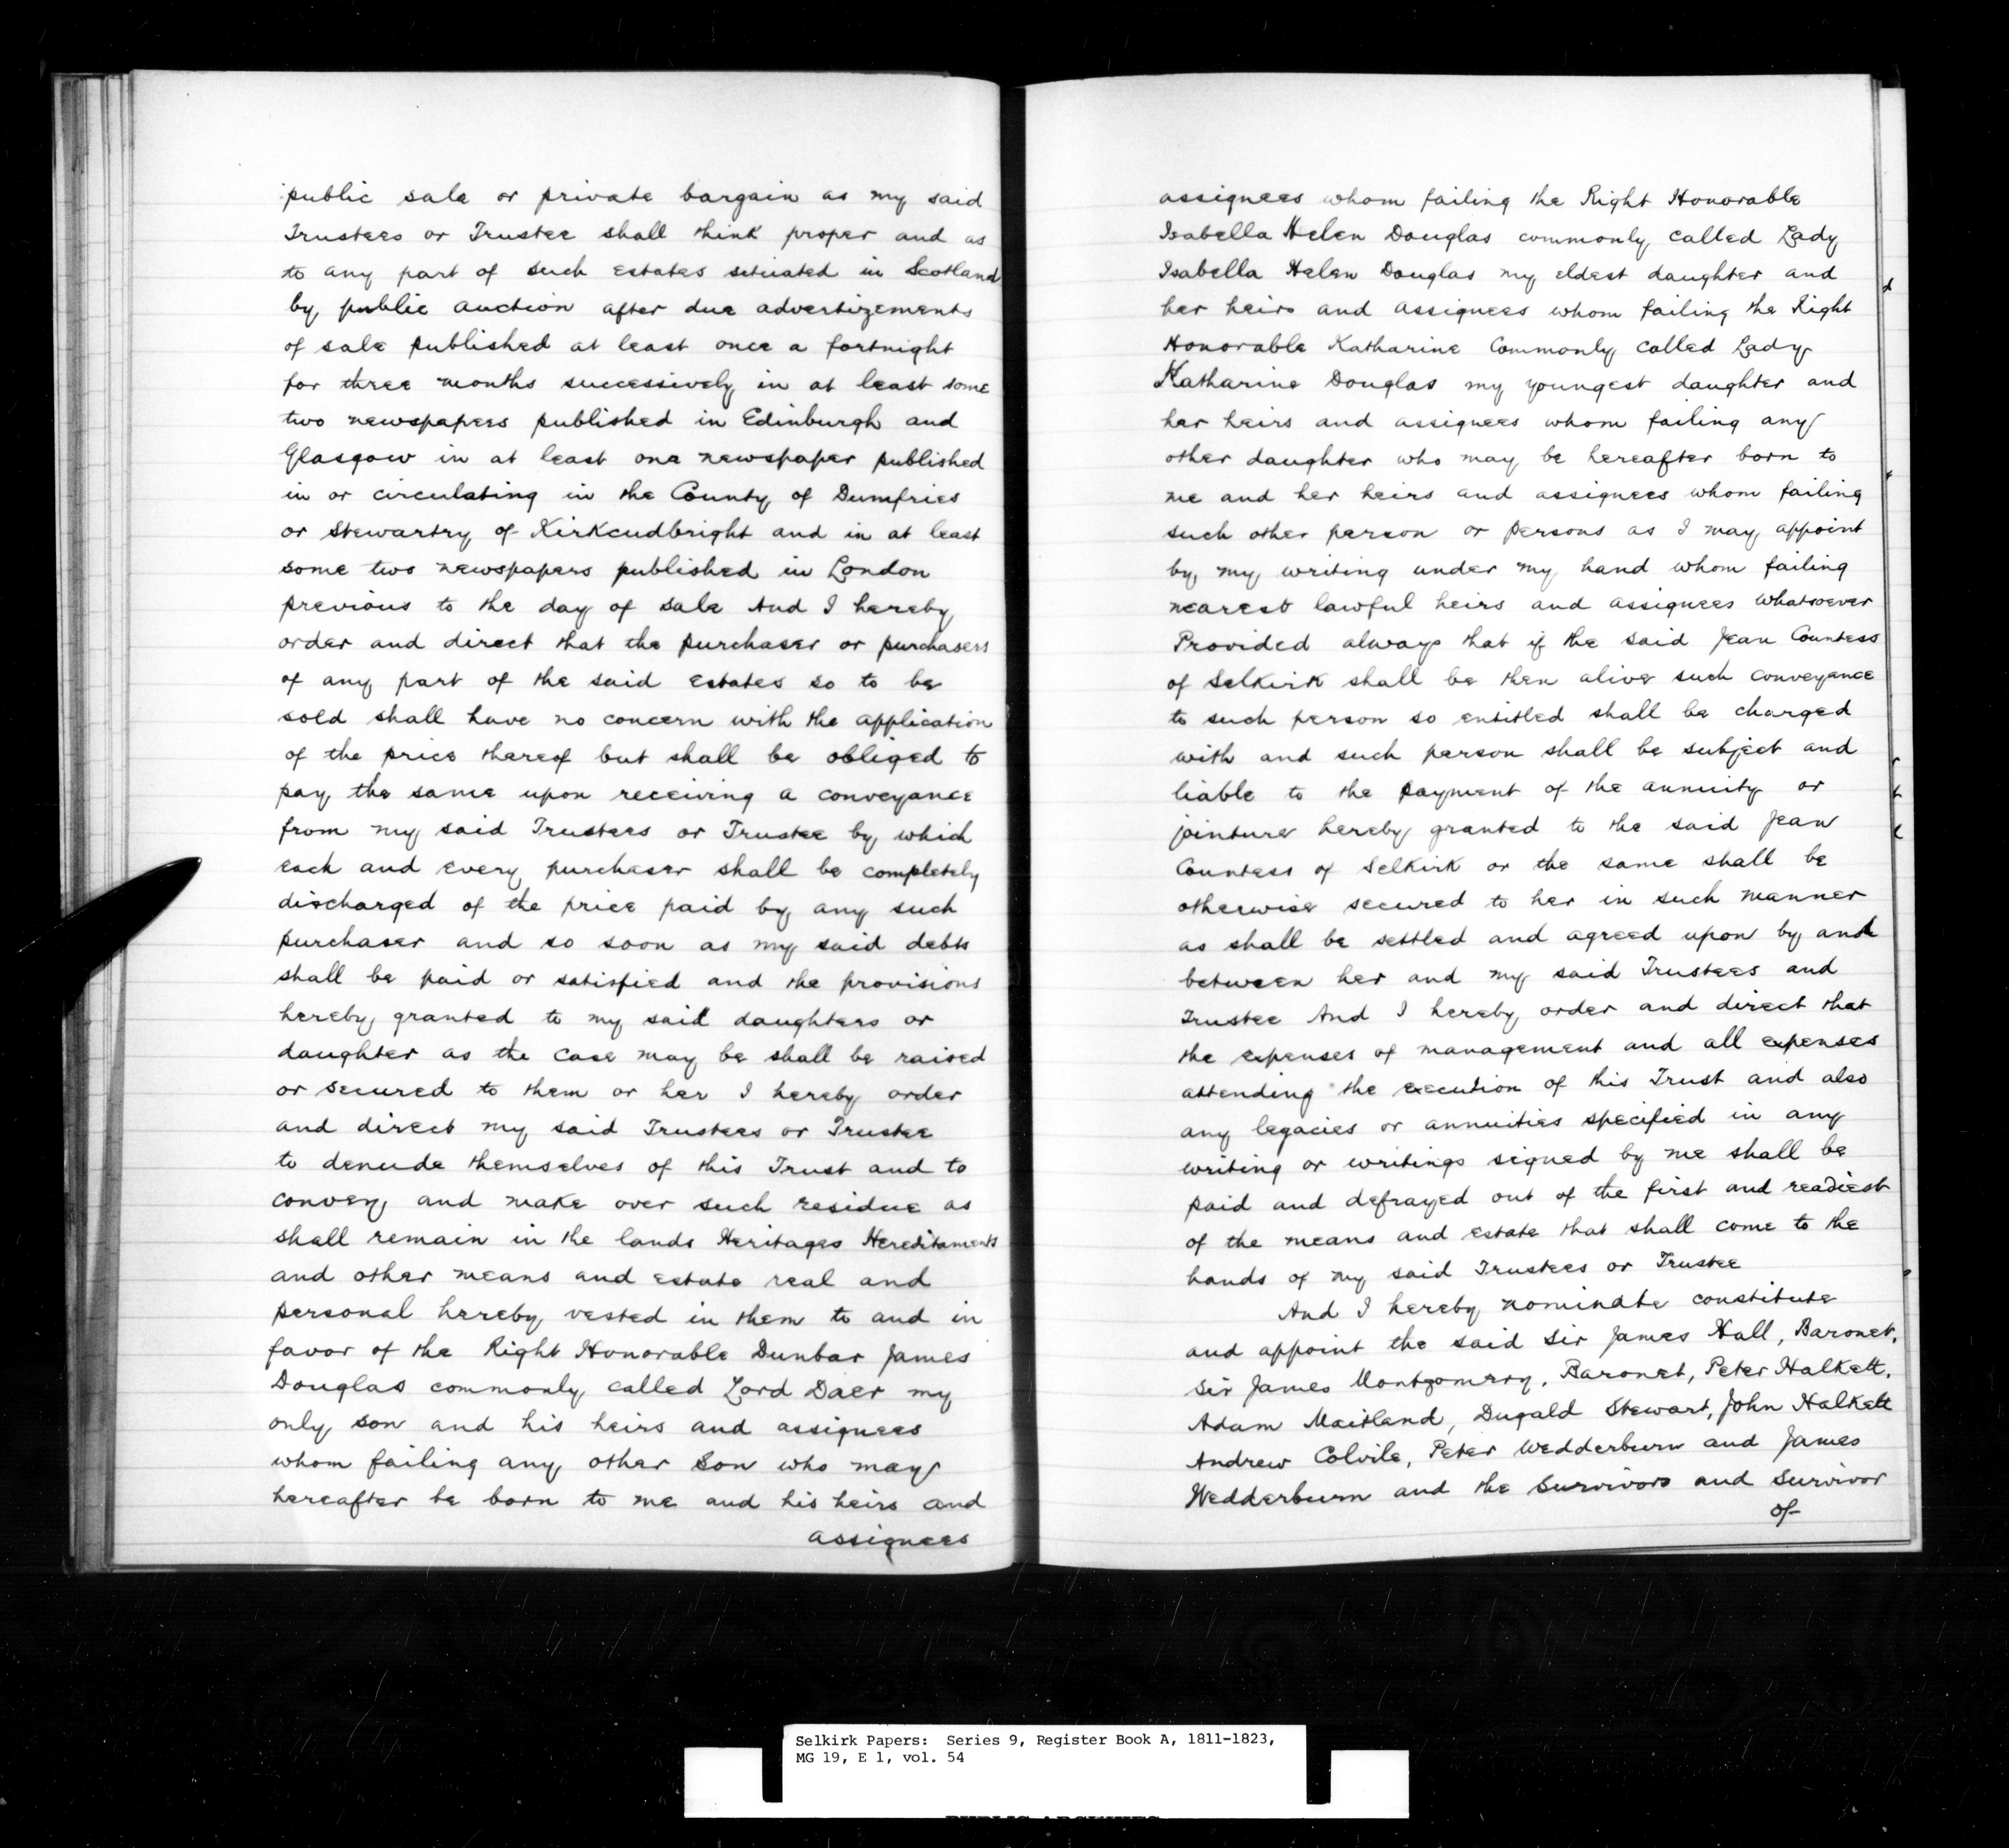 public sale or private bargain as my said
Trustees or Trustee shall think proper and as
to any part of such estates situated in Scotland
by public auction after due advertizements
of sale published at least once a fortnight
for three months successively in at least some
two newspapers published in Edinburgh and
Glasgow in at least one newspaper published
in or circulating in the County of Dumfries
or Stewartry of Kirkcudbright and in at least
some two newspapers published in London
previous to the day of sale And I hereby
order and direct that the purchaser or purchasers
of any part of the said estates so to be
sold shall have no concern with the application
of the price thereof but shall be obliged to
pay the same upon receiving a conveyance
from my said Trustees or Trustee by which
each and every purchaser shall be completely
discharged of the price paid by any such
purchaser and so soon as my said debts
shall be paid or satisfied and the provisions
hereby granted to my said daughters or
daughter as the case may be shall be raised
or secured to them or her I hereby order
and direct my said Trustees or Trustee
to denude themselves of this Trust and to
convey and make over such residue as
shall remain in the lands Heritages Hereditaments
and other means and estate real and
personal hereby vested in them to and in
favor of the Right Honorable Dunbar James
Douglas commonly called Lord Daer my
only son and his heirs and assignees
whom failing any other Son who may
hereafter be born to me and his heirs and
assignees
assignees whom failing the Right Honorable
Isabella Helen Douglas commonly called Lady
Isabella Helen Douglas my eldest daughter and
her heirs and assignees whom failing the Right
Honorable Katharine Commonly called Lady
Katharine Douglas my youngest daughter and
her heirs and assignees whom failing any
other daughter who may be hereafter born to
me and her heirs and assignees whom failing
such other person or persons as I may appoint
by my writing under my hand whom failing
nearest lawful heirs and assignees whatsoever
Provided always that if the said Jean Countess
of Selkirk shall be then alive such conveyance
to such person so entitled shall be charged
with and such person shall be subject and
liable to the payment of the annuity or
jointure hereby granted to the said Jean
Countess of Selkirk or the same shall be
otherwise secured to her in such manner
as shall be settled and agreed upon by and
between her and my said Trustees and
Trustee And I hereby order and direct that
the expenses of management and all expenses
attending the execution of this Trust and also
any legacies or annuities specified in any
writing or writings signed by me shall be
paid and defrayed out of the first and readiest
of the means and estate that shall come to the
hands of my said Trustees or Trustee
And I hereby nominate constitute
and appoint the said Sir James Hall, Baronet,
Sir James Montgomery, Baronet, Peter Halkett,
Adam Maitland, Dugald Stewart, John Halkett
Andrew Colvile, Peter Wedderburn and James
Wedderburn and the Survivors and Survivor
of
Selkirk Papers: Series 9, Register Book A, 1811-1823,
MG 19, E 1, vol. 54